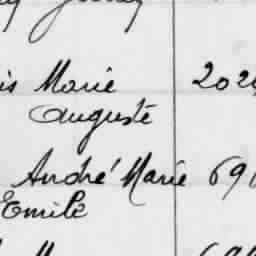 is Marie 202
Auguste
André Marie 69
Emile